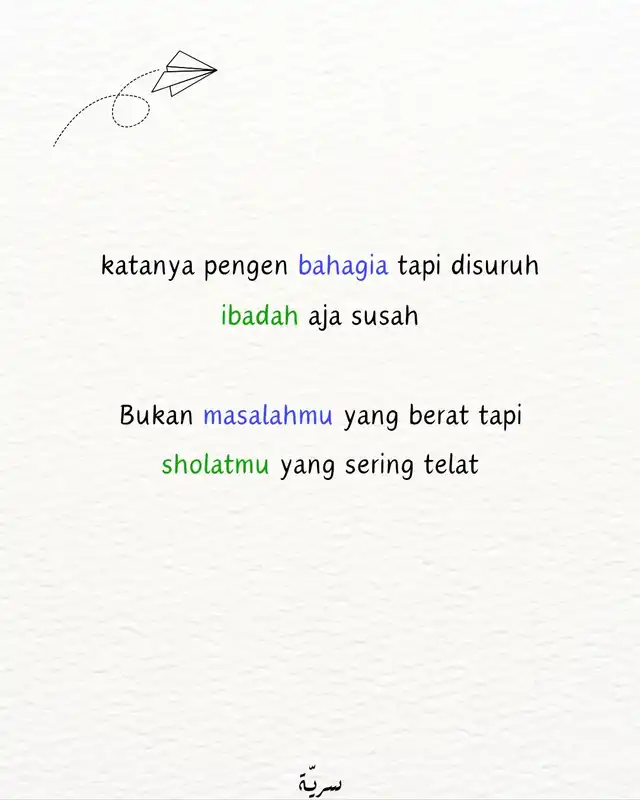 katanya pengen bahagia tapi disuruh
ibadah aja susah
Bukan masalahmu yang berat tapi
sholatmu yang sering telat
سريّة